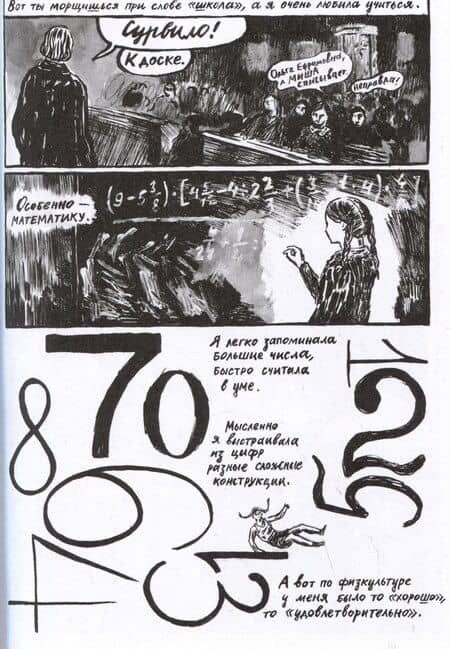 Вот ты морщишься при слове «школа», а я очень любила учиться.
Сурвило!
К доске.
Ольга Ефремовна,
а Миша
списывает.
Неправда!
Особенно —
математику.
Я легко запоминала
большие числа,
быстро считала
в уме.
Мысленно
я выстраивала
из цифр
разные сложные
конструкции.
8
7
0
1
2
5
9
6
4
3
А вот по физкультуре
у меня было то «хорошо»,
то «удовлетворительно».